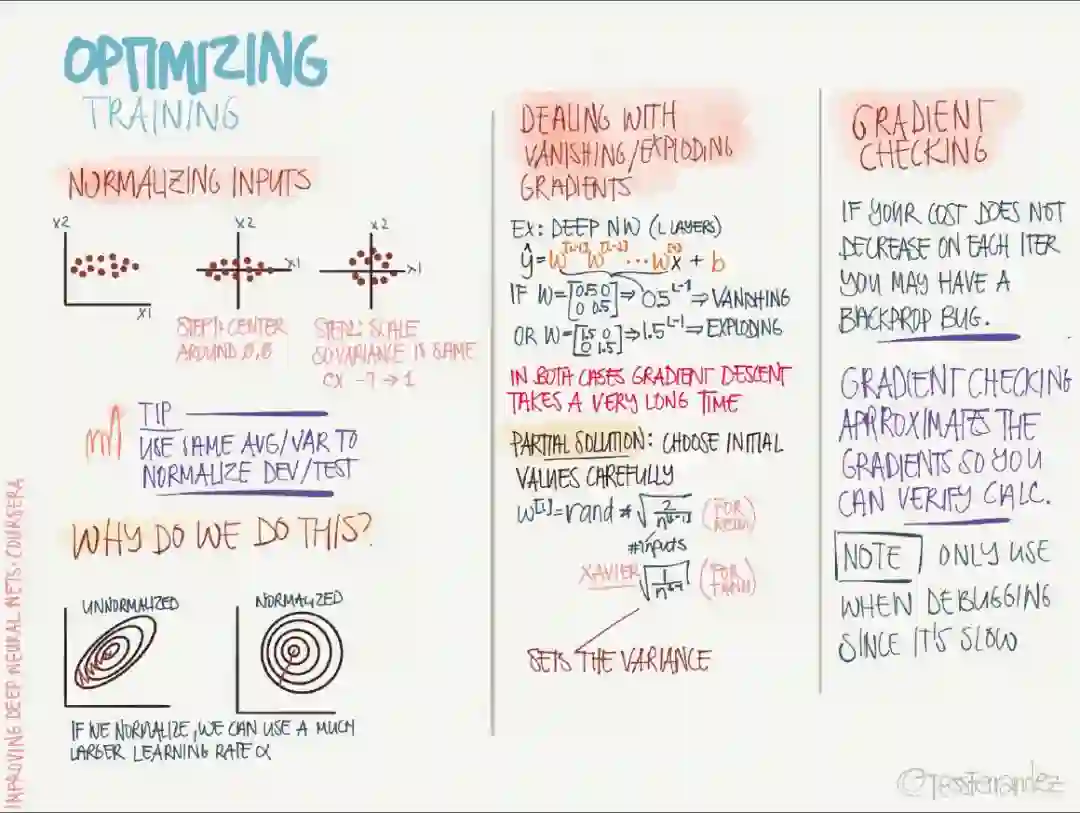 OPTIMIZING
TRAINING
NORMALIZING INPUTS
X2
X1
X2
X1
X2
X1
STEP1: CENTER
AROUND 0,0
STEP2: SCALE
SO VARIANCE IS SAME
TIP
USE SAME AVG/VAR TO
NORMALIZE DEV/TEST
WHY DO WE DO THIS?
UNNORMALIZED
NORMALIZED
IF WE NORMALIZE, WE CAN USE A MUCH
LARGER LEARNING RATE α
DEALING WITH
VANISHING/EXPLODING
GRADIENTS
EX: DEEP NW (L LAYERS)
ŷ=W[L-1]W[L-2]...W[1]X + b
IF W=[0.5 0
0 0.5]⇒0.5^L-1⇒VANISHING
OR W=[1.5 0
0 1.5]⇒1.5^L-1⇒EXPLODING
IN BOTH CASES GRADIENT DESCENT
TAKES A VERY LONG TIME
PARTIAL SOLUTION: CHOOSE INITIAL
VALUES CAREFULLY
W[L]=rand * √2/n[L-1] (FOR
RELU)
#inputs
XAVIER √1/n (FOR
TANH)
SETS THE VARIANCE
GRADIENT
CHECKING
IF YOUR COST DOES NOT
DECREASE ON EACH ITER
YOU MAY HAVE A
BACKPROP BUG.
GRADIENT CHECKING
APPROXIMATES THE
GRADIENTS SO YOU
CAN VERIFY CALC.
NOTE ONLY USE
WHEN DEBUGGING
SINCE IT'S SLOW
IMPROVING DEEP NEURAL NETS: COURSERA
@TessFerrandez